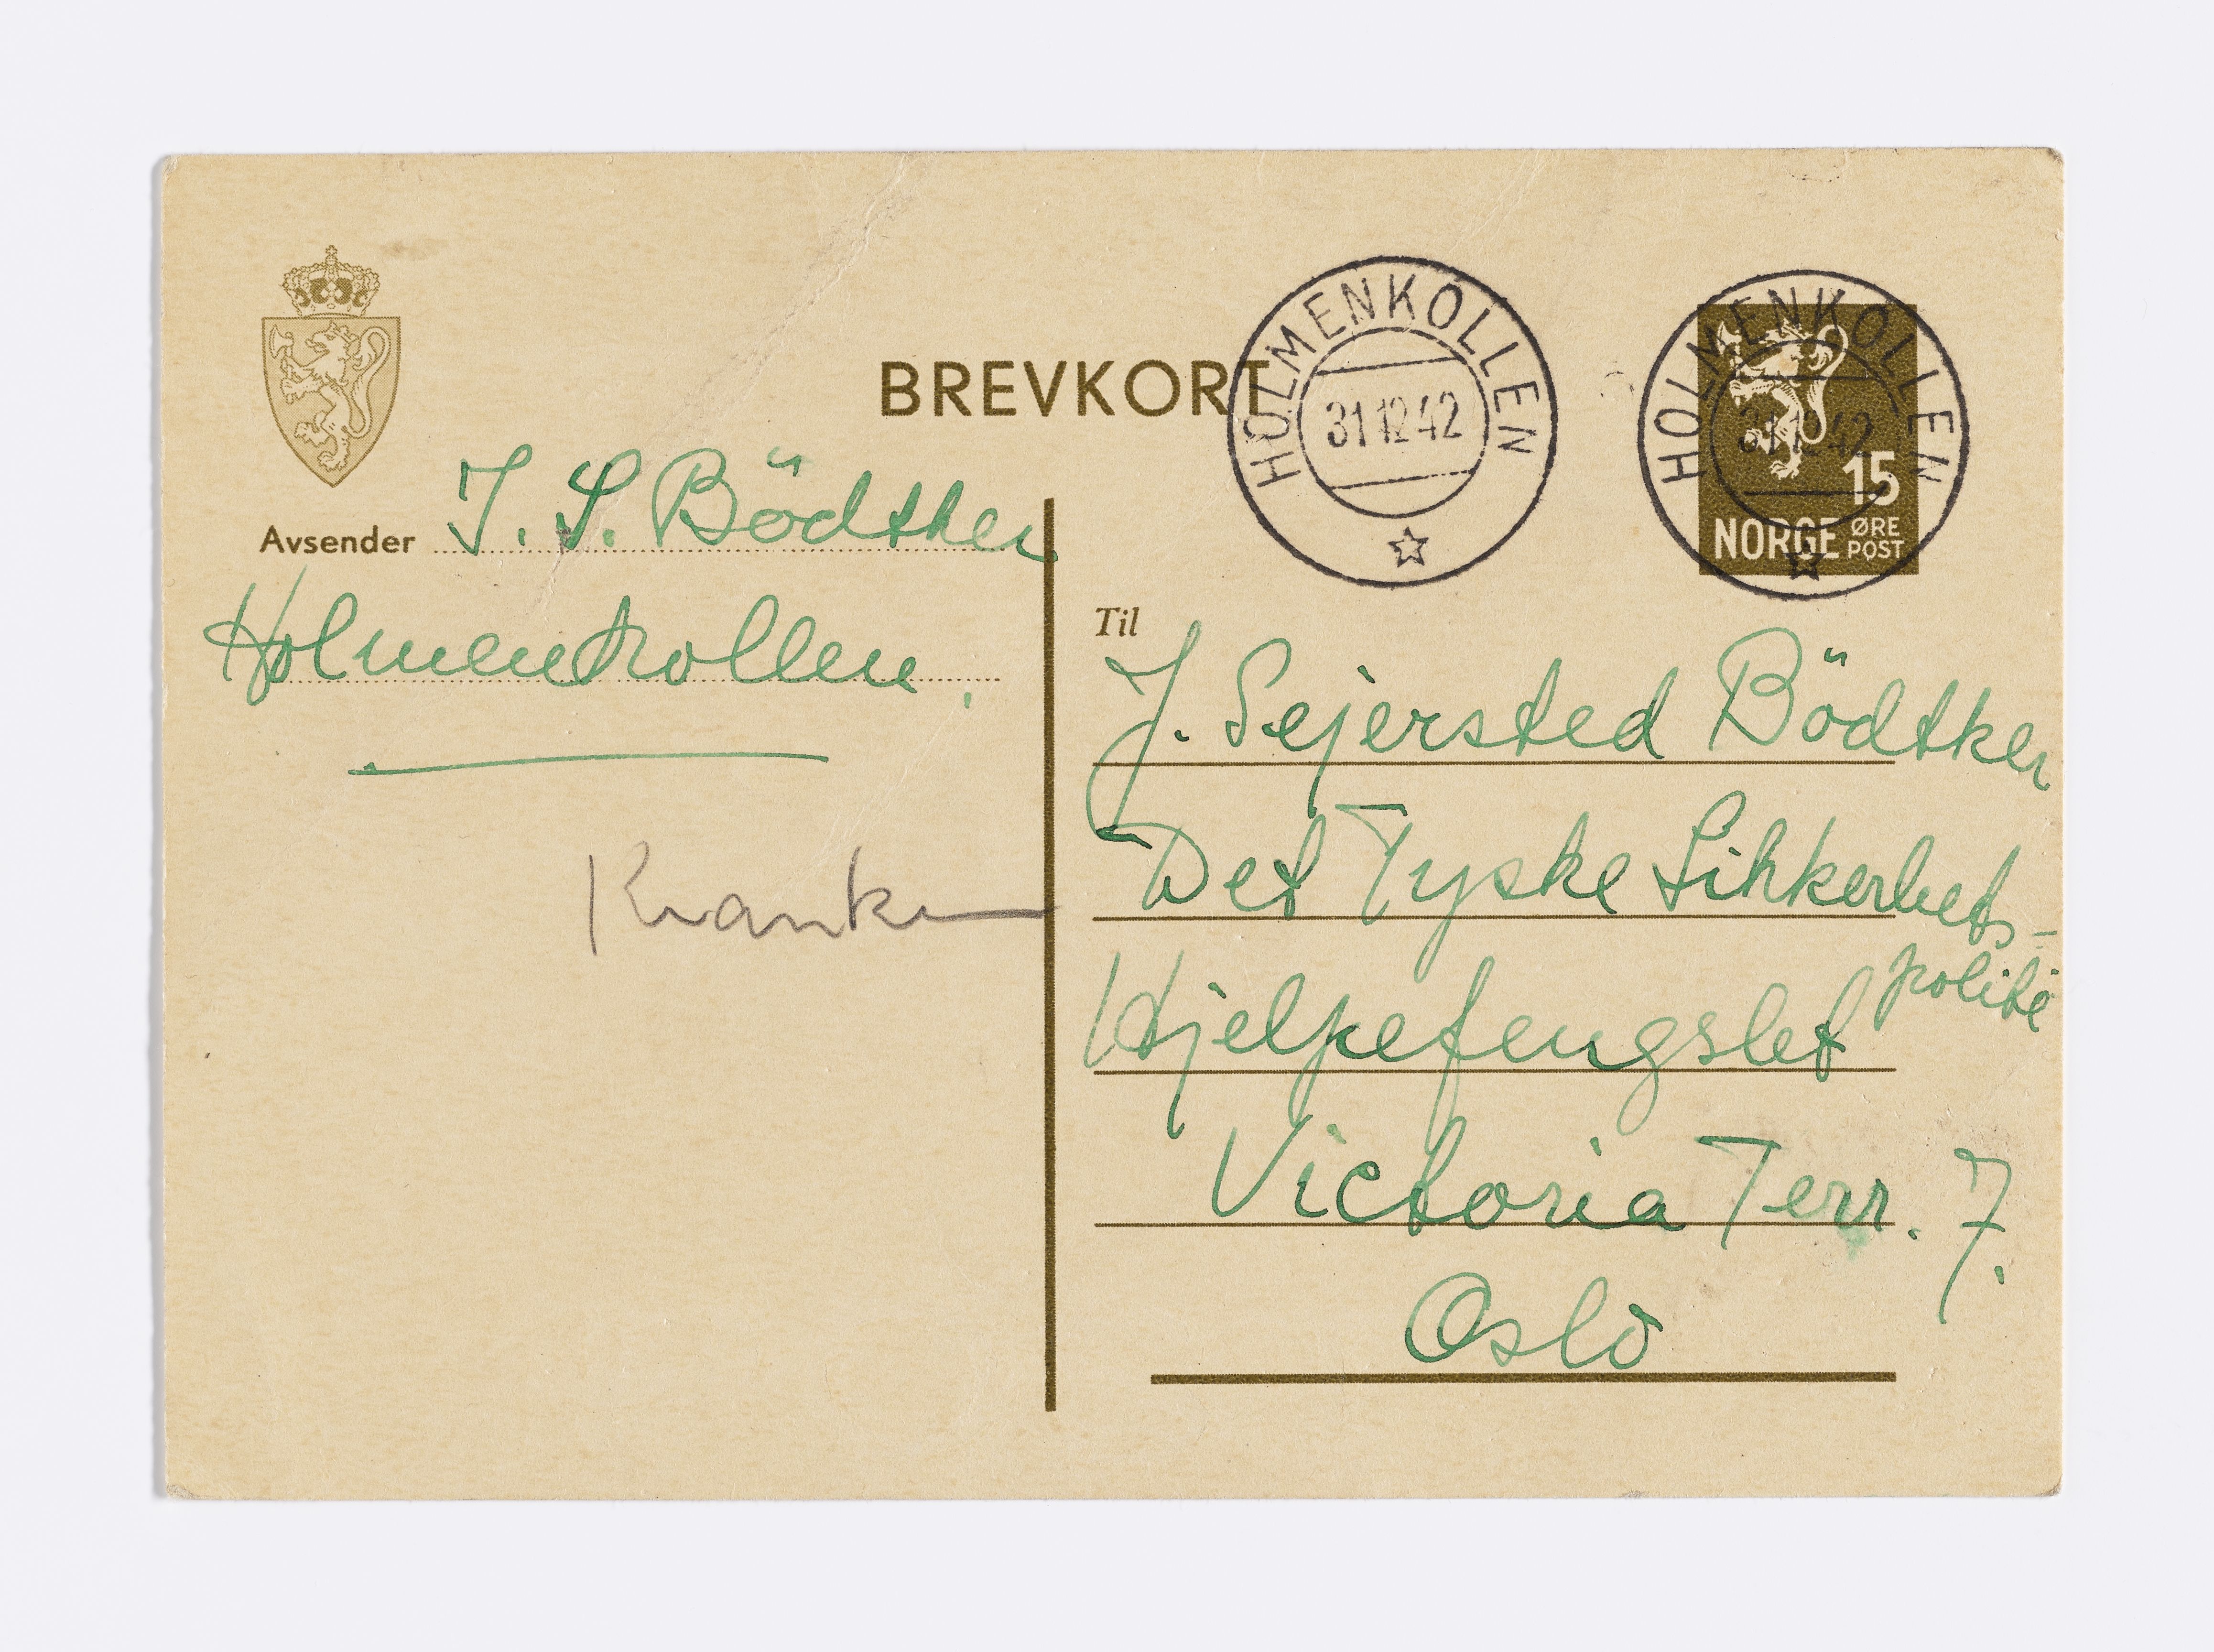 BREVKORT
HOLMENKOLLEN
31 12 42
HOLMENKOLLEN
31 12 42
15
NORGE ØRE
POST
Avsender J. S. Bödtker
Holmenkollen.
Til
J. Sejersted Bödtker
Det Tyske Sihkerhets-
politi
Hjelpefengslet
Victoria Terr. 7.
Oslo